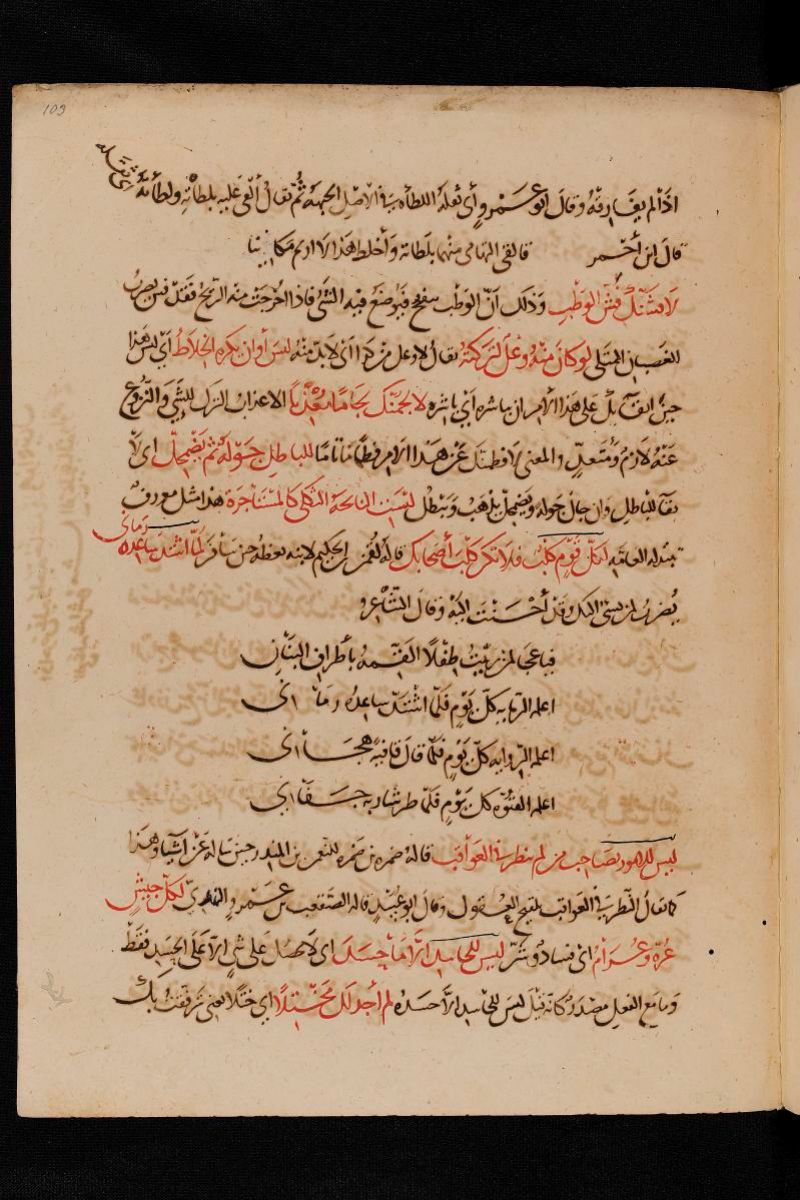 109
اذا لم يفارقه وقال ابو عمرو أي ثقله اللطاة في الاصل الجبهة ثم يقال ألقى عليه بلطاته ولطاته أي ثقله
قال ابن أحمر فالقى التهامي منهما بلطاته وأخلط هذا لا اريم مكانيا
لافشّنّك فشّ الوطب وذلك أنّ الوطب ينفخ فيوضع فيه الشئ فاذا اخرجت منه الريح فقد فش يضرب
للغضبان الممتلي لو كان منه وعل لتركته يقال لا وعل من كذا اي لا بد منه ليس أوان يكره الخلاط أي ليس هذا
حين ابقائك على هذا الامر ان يباشره أي باشره لالجمنّك لجاما معذبا الاعذاب الترك للشئ والنزوع
عنه لازم ومتعد والمعنى لافطمنك عن هذا الامر فطاما تاما للباطل جولة ثم يضمحل اي لا
بقا للباطل وان جال جوله ويضمحل يذهب ويبطل ليست النائحة الثكلى كالمستاجرة هذا مثل معروف
تبتذله العامة لكل قوم كلب فلا تكن كلب أصحابك قاله لقمن الحكيم لابنه يعظه حين سافر لما اشتد ساعده رماني
يضرب لمن يسئ اليك وقد أحسنت اليه وقال الشاعر
فيا عجبا لمن ربّيت طفلا القمه بأطراف البنان
اعلمه الرماية كل يوم فلما اشتد ساعده رماني
اعلمه الرواية كل يوم فلما قال قافية هجاني
اعلمه الفتوة كل يوم فلما طر شاربه جفاني
ليس للامور بصاحب من لم ينظر في العواقب قاله ضمره بن ضمره للنعمن بن المنذر حين ساله عن اشيا وهذا
كما يقال النظر في العواقب تلقيح العقول وقال ابو عبيد قاله الصقعب بن عمرو النهدي لكل جيش
عرة وعرام اي فساد وشر ليس للحاسد الا ما حسد اي لا يحصل على شئ الا على الحسد فقط
وما مع الفعل مصدر كانه قيل ليس للحاسد الا حسده لم أجد لك مختلا اي ختلا يعني ترفقت بك